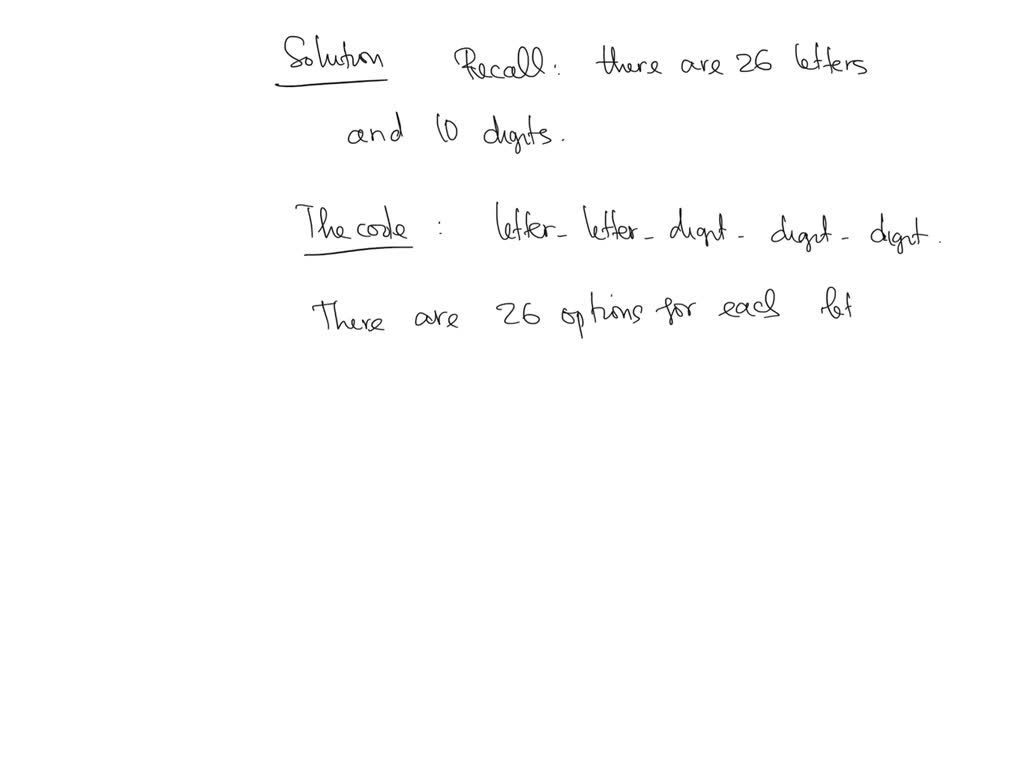 Solution Recall: there are 26 letters
and 10 digits.
The code: letter - letter - digit - digit - digit.
There are 26 options for each let